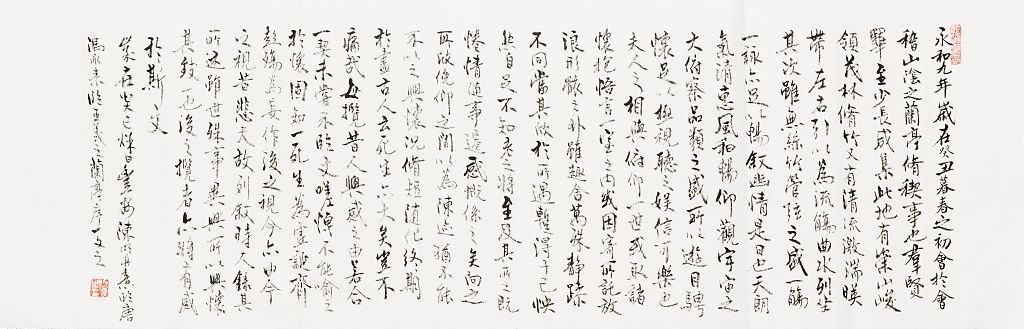 永和九年歲在癸丑暮春之初會於會
稽山陰之蘭亭脩禊事也羣賢
畢至少長咸集此地有崇山峻
領茂林脩竹又有清流激湍映
帶左右引以為流觴曲水列坐
其次雖無絲竹管弦之盛一觴
一詠亦足以暢叙幽情是日也天朗
氣清惠風和暢仰觀宇宙之
大俯察品類之盛所以遊目騁
懷足以極視聽之娛信可樂也
夫人之相與俯仰一世或取諸
懷抱悟言一室之內或因寄所託放
浪形骸之外雖趣舍萬殊靜躁
不同當其欣於所遇暫得於己怏
然自足不知老之將至及其所之既
惓情隨事遷感慨係之矣向之
所欣俛仰之間以為陳迹猶不能
不以之興懷況脩短隨化終期
於盡古人云死生亦大矣豈不
痛哉每攬昔人興感之由若合
一契未嘗不臨文嗟悼不能喻之
於懷固知一死生為虛誕齊
彭殤為妄作後之視今亦由今
之視昔悲夫故列叙時人錄其
所述雖世殊事異所以興懷
其致一也後之攬者亦將有感
於斯文
歲在癸 日 陳 書 唐
馮承素臨王羲之蘭亭序一文